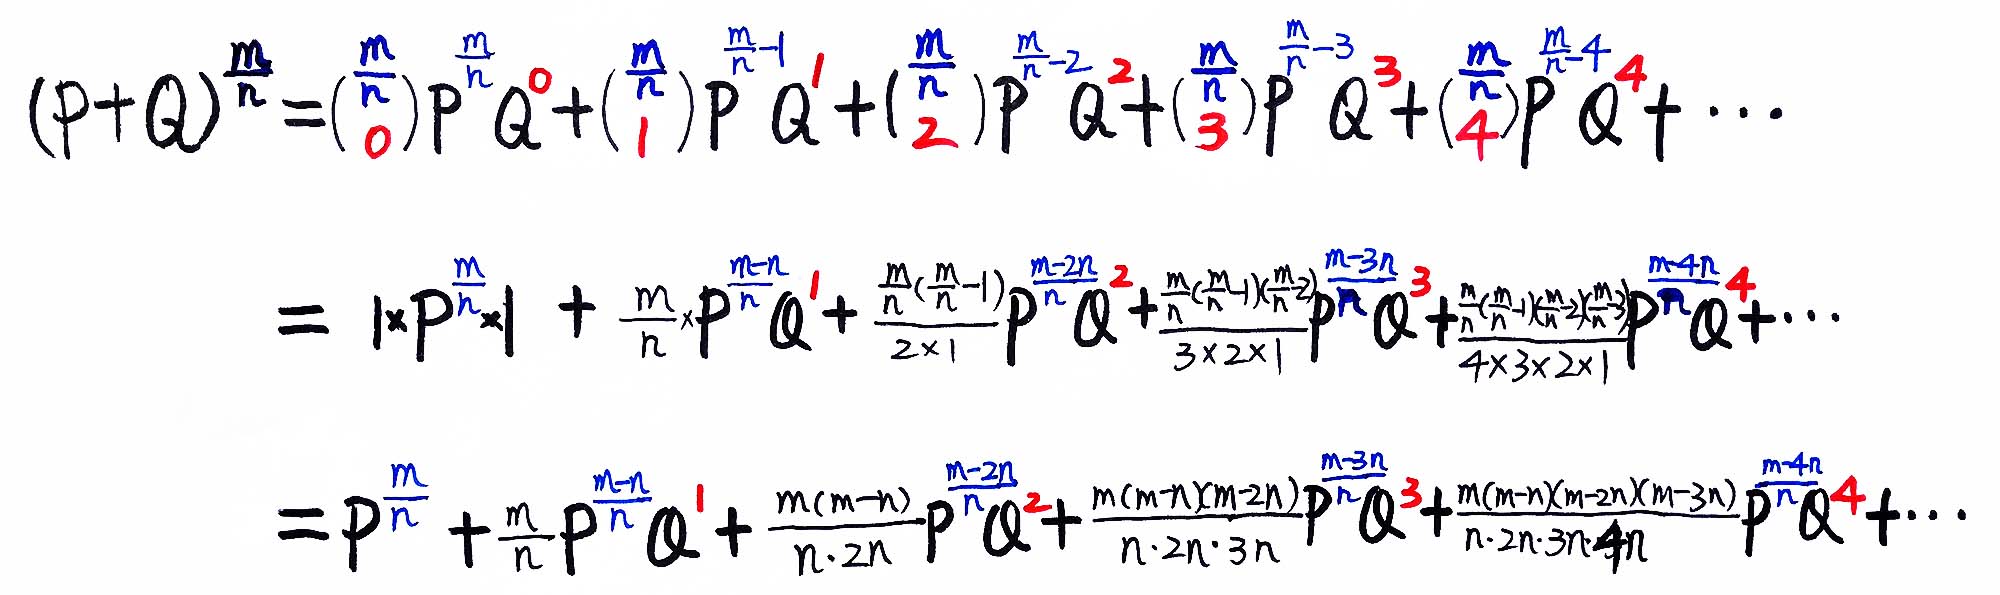 (P+Q)^{\frac{m}{n}} = \binom{\frac{m}{n}}{0} P^{\frac{m}{n}} Q^0 + \binom{\frac{m}{n}}{1} P^{\frac{m}{n}-1} Q^1 + \binom{\frac{m}{n}}{2} P^{\frac{m}{n}-2} Q^2 + \binom{\frac{m}{n}}{3} P^{\frac{m}{n}-3} Q^3 + \binom{\frac{m}{n}}{4} P^{\frac{m}{n}-4} Q^4 + \cdots
= 1 \times P^{\frac{m}{n}} \times 1 + \frac{m}{n} \times P^{\frac{m-n}{n}} Q^1 + \frac{\frac{m}{n}(\frac{m}{n}-1)}{2 \times 1} P^{\frac{m-2n}{n}} Q^2 + \frac{\frac{m}{n}(\frac{m}{n}-1)(\frac{m}{n}-2)}{3 \times 2 \times 1} P^{\frac{m-3n}{n}} Q^3 + \frac{\frac{m}{n}(\frac{m}{n}-1)(\frac{m}{n}-2)(\frac{m}{n}-3)}{4 \times 3 \times 2 \times 1} P^{\frac{m-4n}{n}} Q^4 + \cdots
= P^{\frac{m}{n}} + \frac{m}{n} P^{\frac{m-n}{n}} Q^1 + \frac{m(m-n)}{n \cdot 2n} P^{\frac{m-2n}{n}} Q^2 + \frac{m(m-n)(m-2n)}{n \cdot 2n \cdot 3n} P^{\frac{m-3n}{n}} Q^3 + \frac{m(m-n)(m-2n)(m-3n)}{n \cdot 2n \cdot 3n \cdot 4n} P^{\frac{m-4n}{n}} Q^4 + \cdots